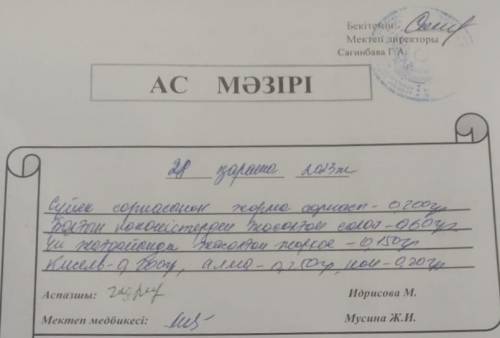 Бекітемін
Мектеп директоры
Сагинбаева Г.А.
АС МӘЗІРІ
28 қараша 2023ж
Сүйек сорпасынан жарма сорпасы - 0,200гр
көкөністерден жасалған салат - 0,60гр
жасалған жаркое - 0,150гр
Кисель - 0,200гр, алма - 0,150гр, нан - 0,20гр
Аспазшы:
Идрисова М.
Мектеп медбикесі:
Мусина Ж.И.